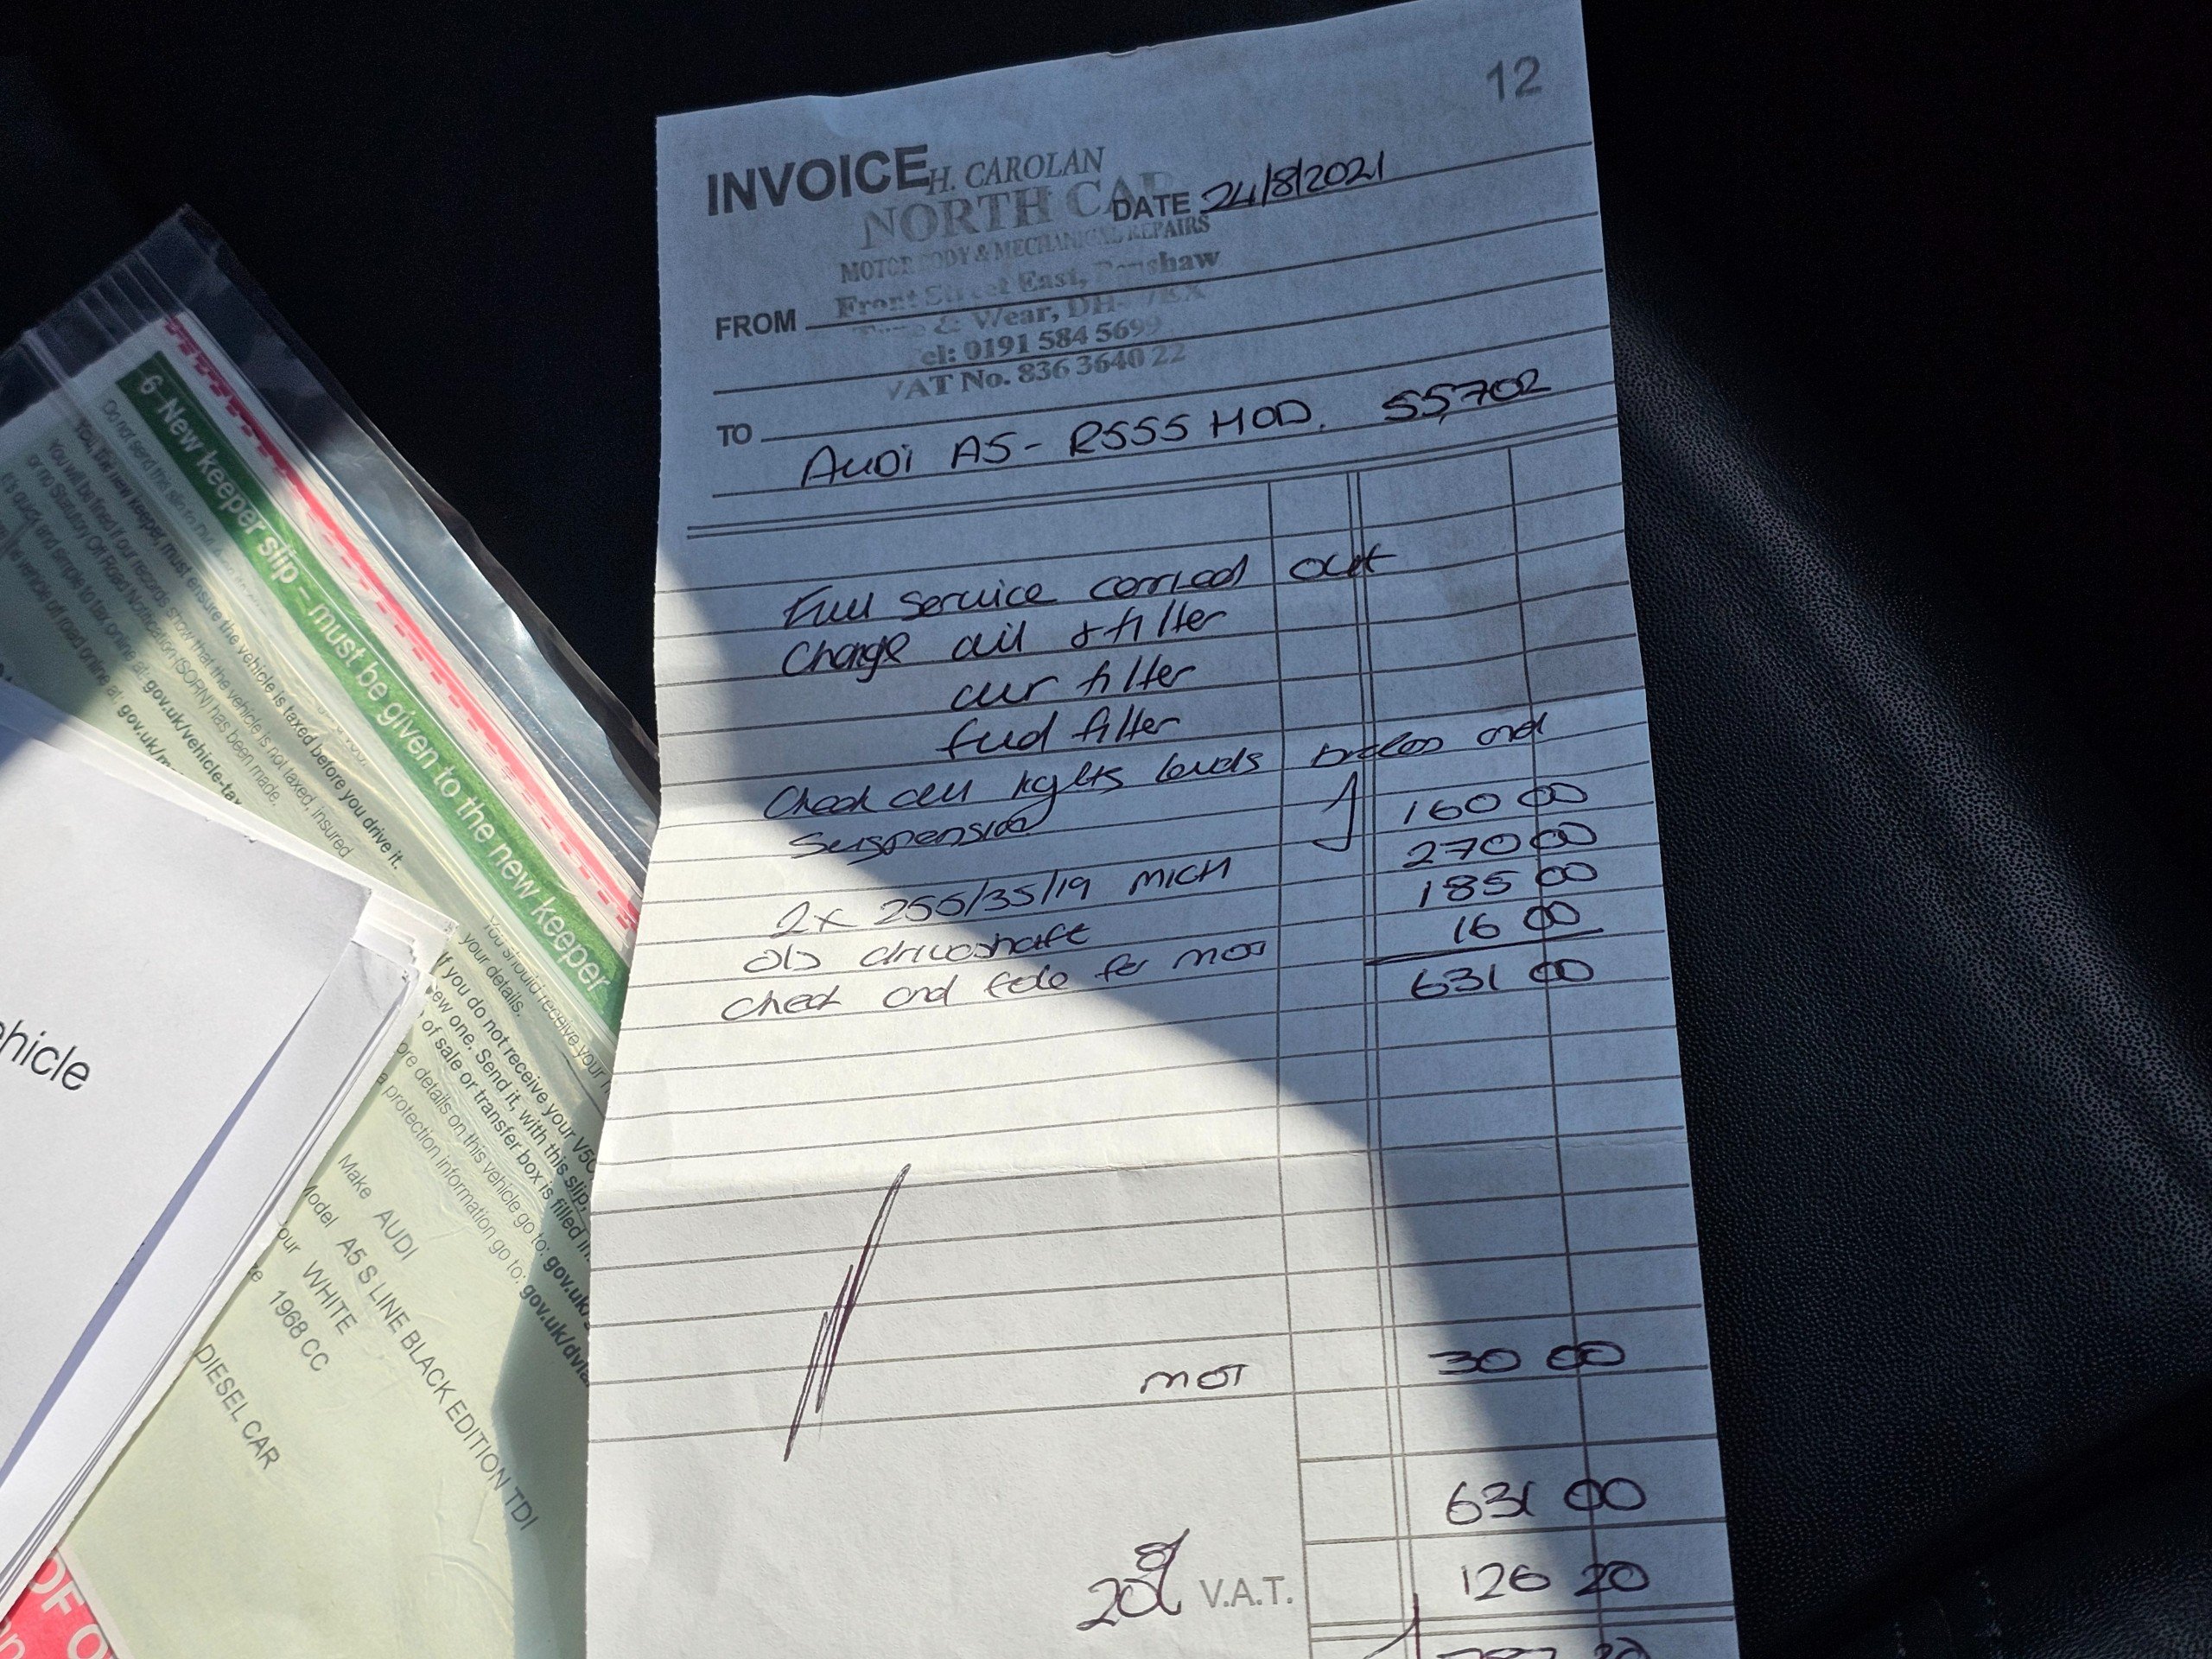 12
INVOICE H. CAROLAN
NORTH CAR
DATE 24/8/2021
MOTOR BODY & MECHANICAL REPAIRS
Front Street East, Penshaw
FROM
Tyne & Wear, DH 7EX
Tel: 0191 584 5699
VAT No. 836 3640 22
TO
AUDI A5 - R555 MOD. 55702
Full service carried out
Change oil & filter
air filter
fuel filter
Check all lights levels brakes and
Suspension 160 00
2x 255/35/19 MICH 270 00
driveshaft 185 00
Check and for MOT 16 00
631 00
MOT 30 00
631 00
20% V.A.T. 126 20
787 20
6-New keeper slip – must be given to the new keeper
You, the new keeper, must ensure the vehicle is taxed before you drive it.
You will be fined if our records show that the vehicle is not taxed, insured
or no Statutory Off Road Notification (SORN) has been made.
It's quick and simple to tax online at: gov.uk/vehicle-tax
vehicle off road online at: gov.uk/m
You should receive your
your details.
If you do not receive your V5C
new one. Send it, with this slip,
of sale or transfer box is filled in
more details on this vehicle go to: gov.uk/
protection information go to: gov.uk/dvla
Make AUDI
Model A5 S LINE BLACK EDITION TDI
WHITE
1968 CC
DIESEL CAR
ehicle
OF